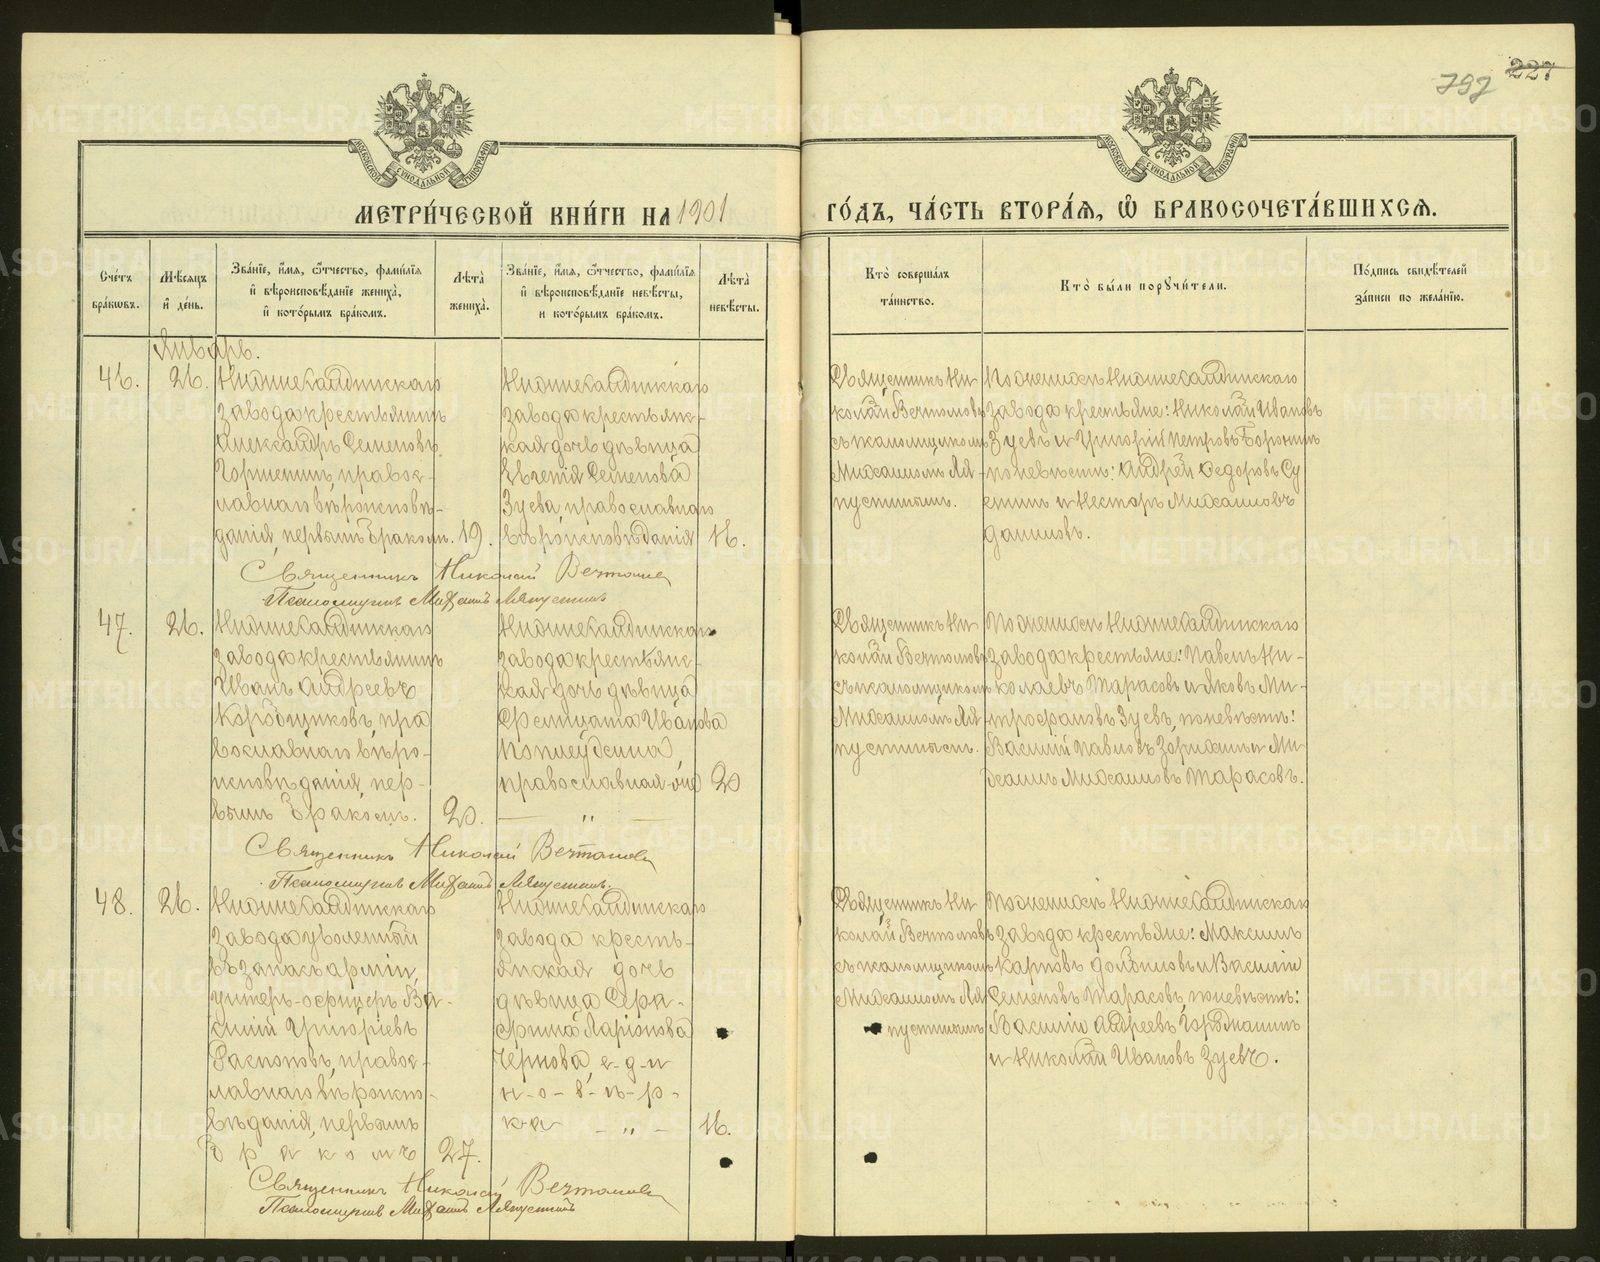 797 227
МОСКОВСКОЙ СѴНОДАЛЬНОЙ ТИПОГРАФІИ
МОСКОВСКОЙ СѴНОДАЛЬНОЙ ТИПОГРАФІИ
МЕТРИ́ЧЕСКОЙ КНИ́ГИ НА 1901
ГО́ДЪ, ЧА́СТЬ ВТОРА́Ѧ, Ѽ БРАКОСОЧЕТА́ВШИХСѦ.
Сче́тъ
бра́кѡвъ.
Мѣ́сѧцъ
и҆ де́нь.
Зва́нїе, и҆́мѧ, ѻ҆́тчество, фамилїѧ
и҆ вѣроисповѣ́данїе жениха̀,
и҆ кото́рымъ бра́комъ.
Лѣта̀
жениха̀.
Зва́нїе, и҆́мѧ, ѻ҆́тчество, фамилїѧ
и҆ вѣроисповѣ́данїе невѣ́сты,
и кото́рымъ бра́комъ.
Лѣта̀
невѣ́сты.
Кто̀ соверша́лъ
та́инство.
Кто̀ бы́ли порꙋчи́тели.
По́дпись свидѣ́телей
за́писи по жела́нїю.
Январь.
46.
26.
Нижнесалдинскаго
завода крестьянинъ
Александръ Семеновъ
Горшенинъ, правос-
лавнаго вѣроисповѣ-
данія, первымъ бракомъ.
19.
Нижнесалдинскаго
завода крестьянс-
кая дочь дѣвица
Семенова
Зуева, православнаго
вѣроисповѣданія
16.
Священникъ Ни
колай
съ псаломщикомъ
Михаиломъ Ля-
пустинымъ.
По женихѣ Нижнесалдинскаго
завода крестьяне: Николай Ивановъ
Зуевъ и Григорій Петровъ Боронинъ
по невѣстѣ: Андрей Федоровъ Су
етинъ и Несторъ Михаиловъ
Даниловъ.
Священникъ Николай
Псаломщикъ Михаилъ Ляпустинъ
47.
26.
Нижнесалдинскаго
завода крестьянинъ
Иванъ Андреевъ
Коробщиковъ, пра
вославнаго вѣро-
исповѣданія, пер-
вымъ бракомъ.
20.
Нижнесалдинскаго
завода крестьянс-
кая дочь дѣвица
Фелицата Иванова
православнаго
20
— " —
Священникъ Ни
колай
съ псаломщикомъ
Михаиломъ Ля
пустинымъ.
По женихѣ Нижнесалдинскаго
завода крестьяне: Павелъ Ни-
колаевъ Тарасовъ и Яковъ Ми-
трофановъ Зуевъ, по невѣстѣ:
Василій Павловъ Зорихинъ и Ми-
хаилъ Михаиловъ Тарасовъ.
Священникъ Николай
Псаломщикъ Михаилъ Ляпустинъ.
48.
26.
Нижнесалдинскаго
завода уволенный
въ запасъ арміи,
унтеръ-офицеръ Ва-
силій Григоріевъ
Распоповъ, правос-
лавнаго вѣроиспо-
вѣданія, первымъ
бракомъ
27.
Нижнесалдинскаго
завода кресть-
янская дочь
дѣвица Фра-
Ларіонова
Чернова, е-д-и
н-о-в-ѣ-р-
ка — " —
16.
Священникъ Ни
колай
съ псаломщикомъ
Михаиломъ Ля
пустинымъ
По женихѣ Нижнесалдинскаго
завода крестьяне: Максимъ
Карповъ Долбиловъ и Василій
Семеновъ Тарасовъ, по невѣстѣ:
Василій Андреевъ
и Николай Ивановъ Зуевъ.
Священникъ Николай
Псаломщикъ Михаилъ Ляпустинъ
METRIKI.GASO-URAL.RU